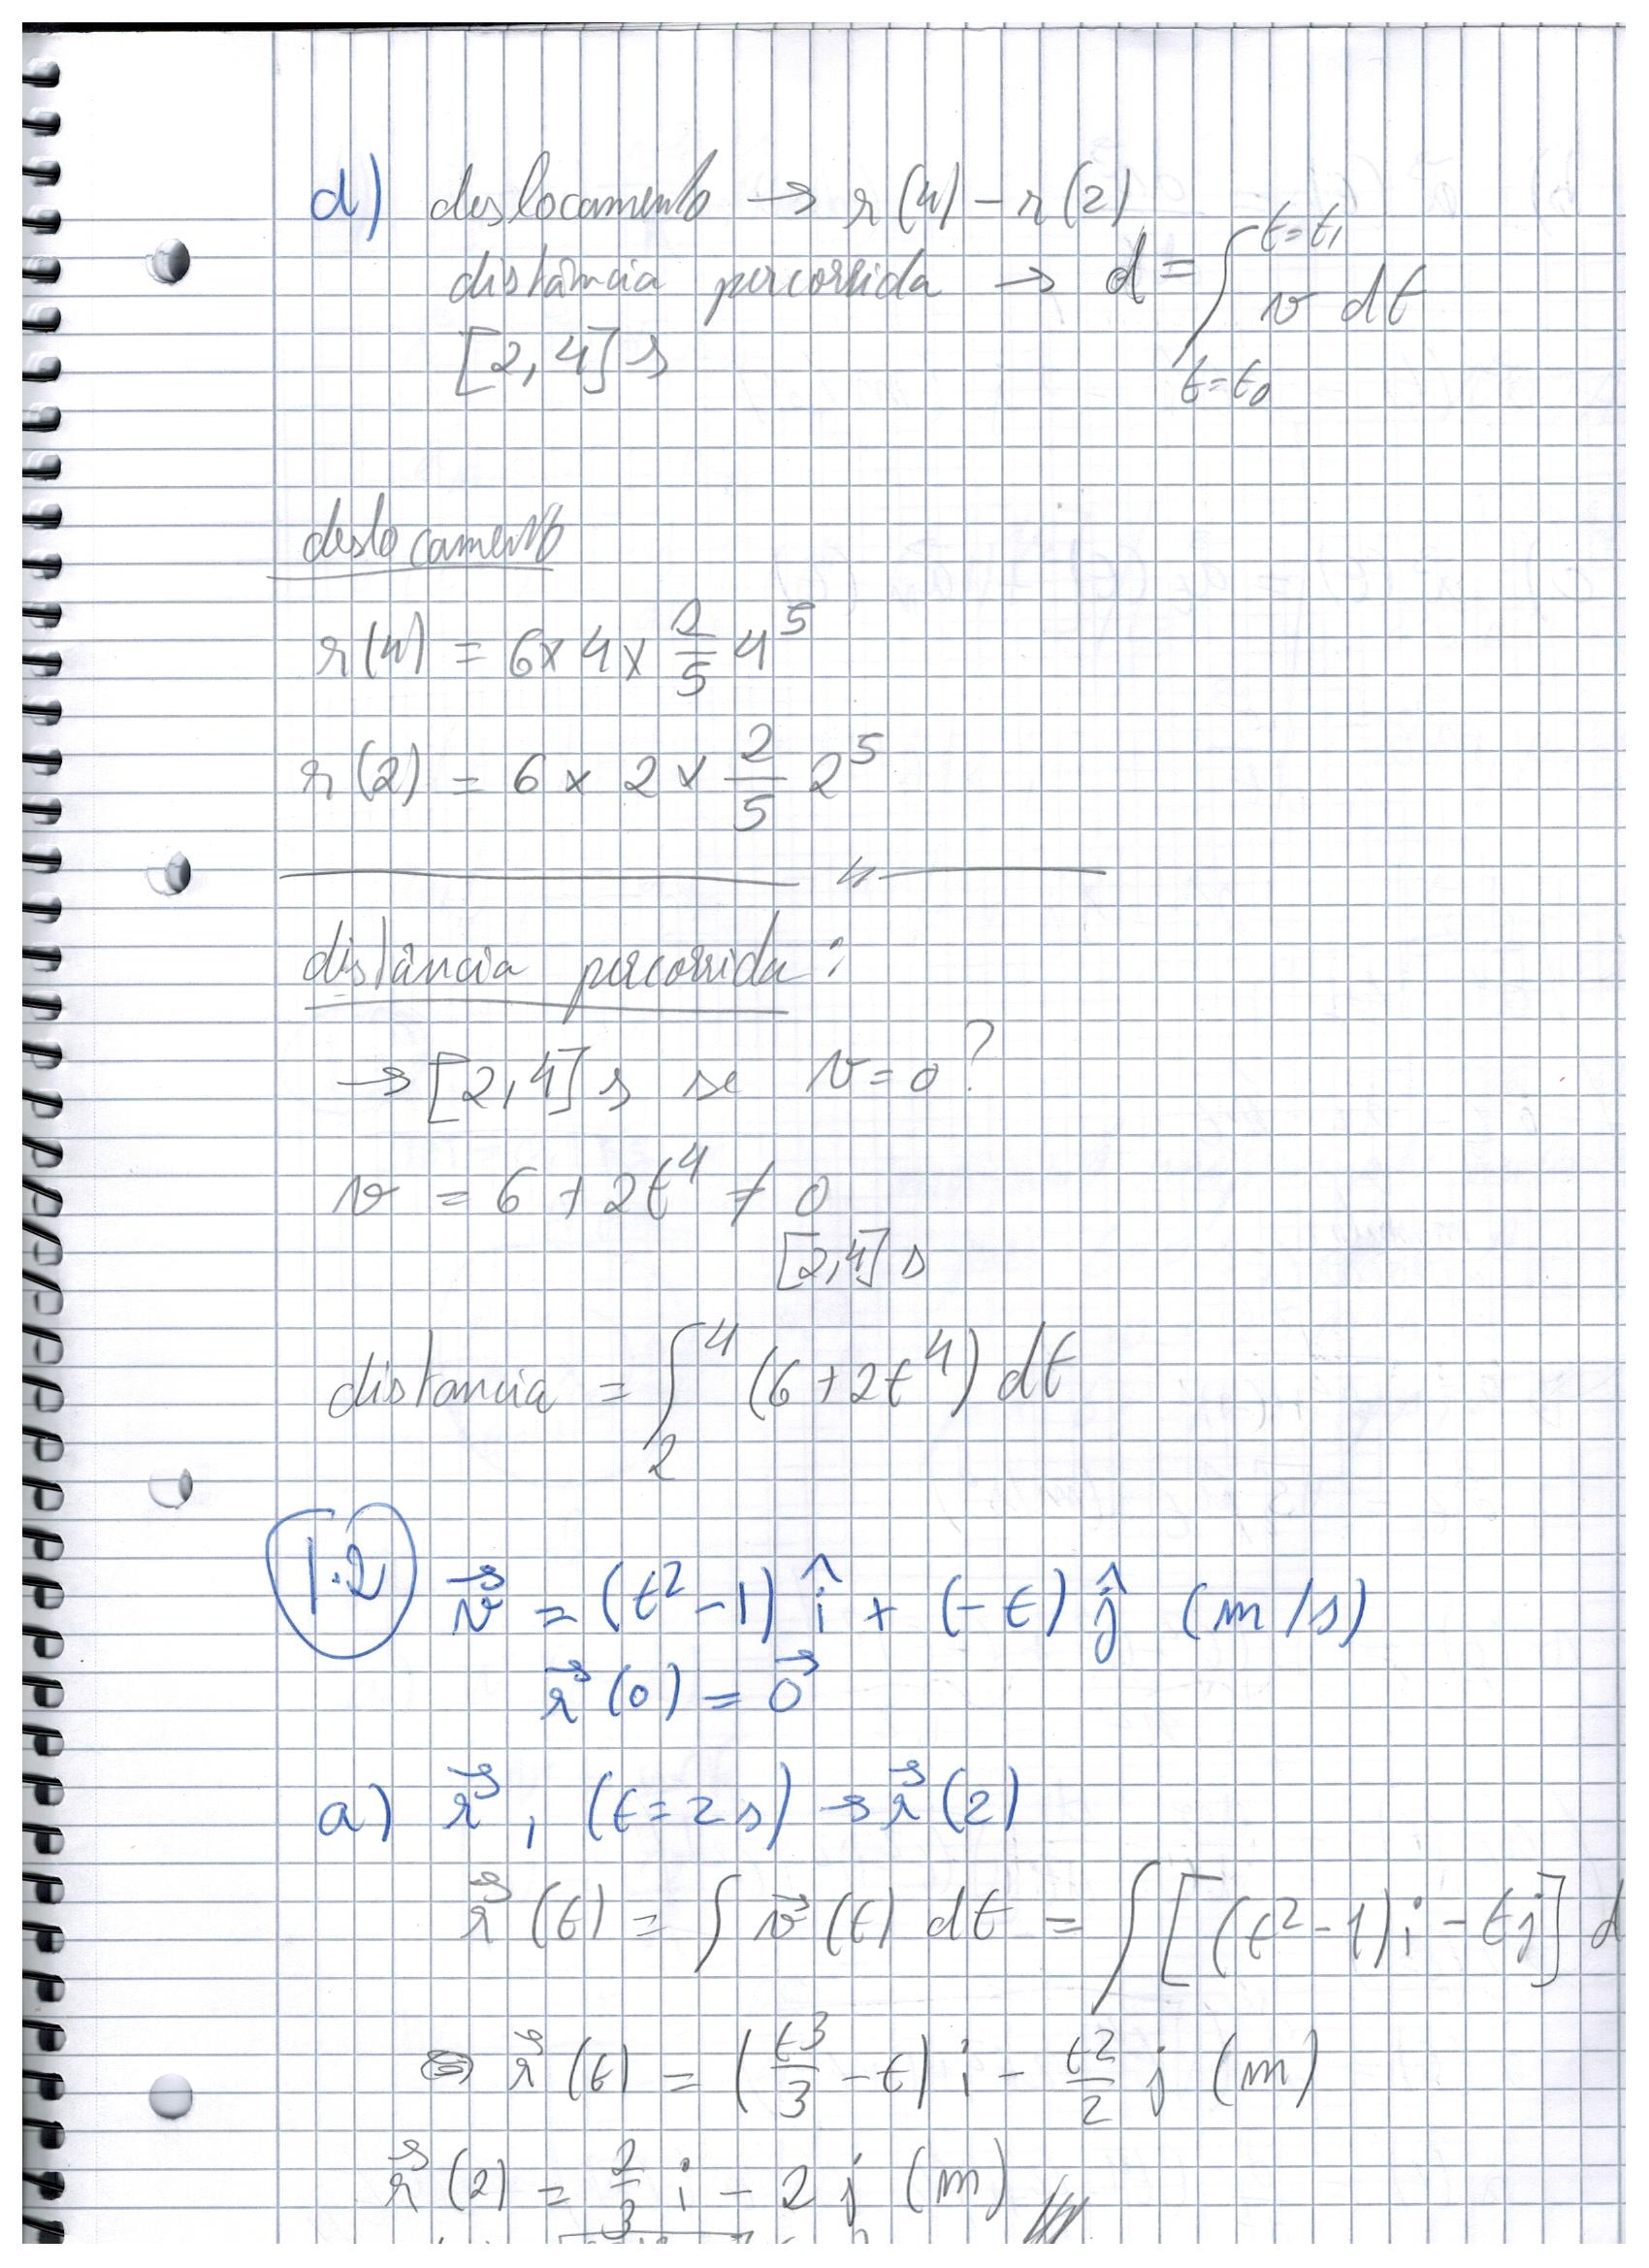 d) deslocamento → r(4) - r(2)
distância percorrida → d = ∫_{t=t₀}^{t=t₁} v dt
[2,4] s
deslocamento
r(4) = 6 × 4 × 2/5 4⁵
r(2) = 6 × 2 × 2/5 2⁵
distância percorrida:
→ [2,4] s se v = 0?
v = 6 + 2t⁴ ≠ 0
[2,4] s
distancia = ∫_2^4 (6 + 2t⁴) dt
1.2 v⃗ = (t² - 1) î + (-t) ĵ (m/s)
r⃗(0) = 0⃗
a) r⃗, (t = 2s) → r⃗(2)
r⃗(t) = ∫ v⃗(t) dt = ∫ [(t² - 1)i - tj] d
⇔ r⃗(t) = (t³/3 - t) i - t²/2 j (m)
r⃗(2) = 2/3 i - 2 j (m)